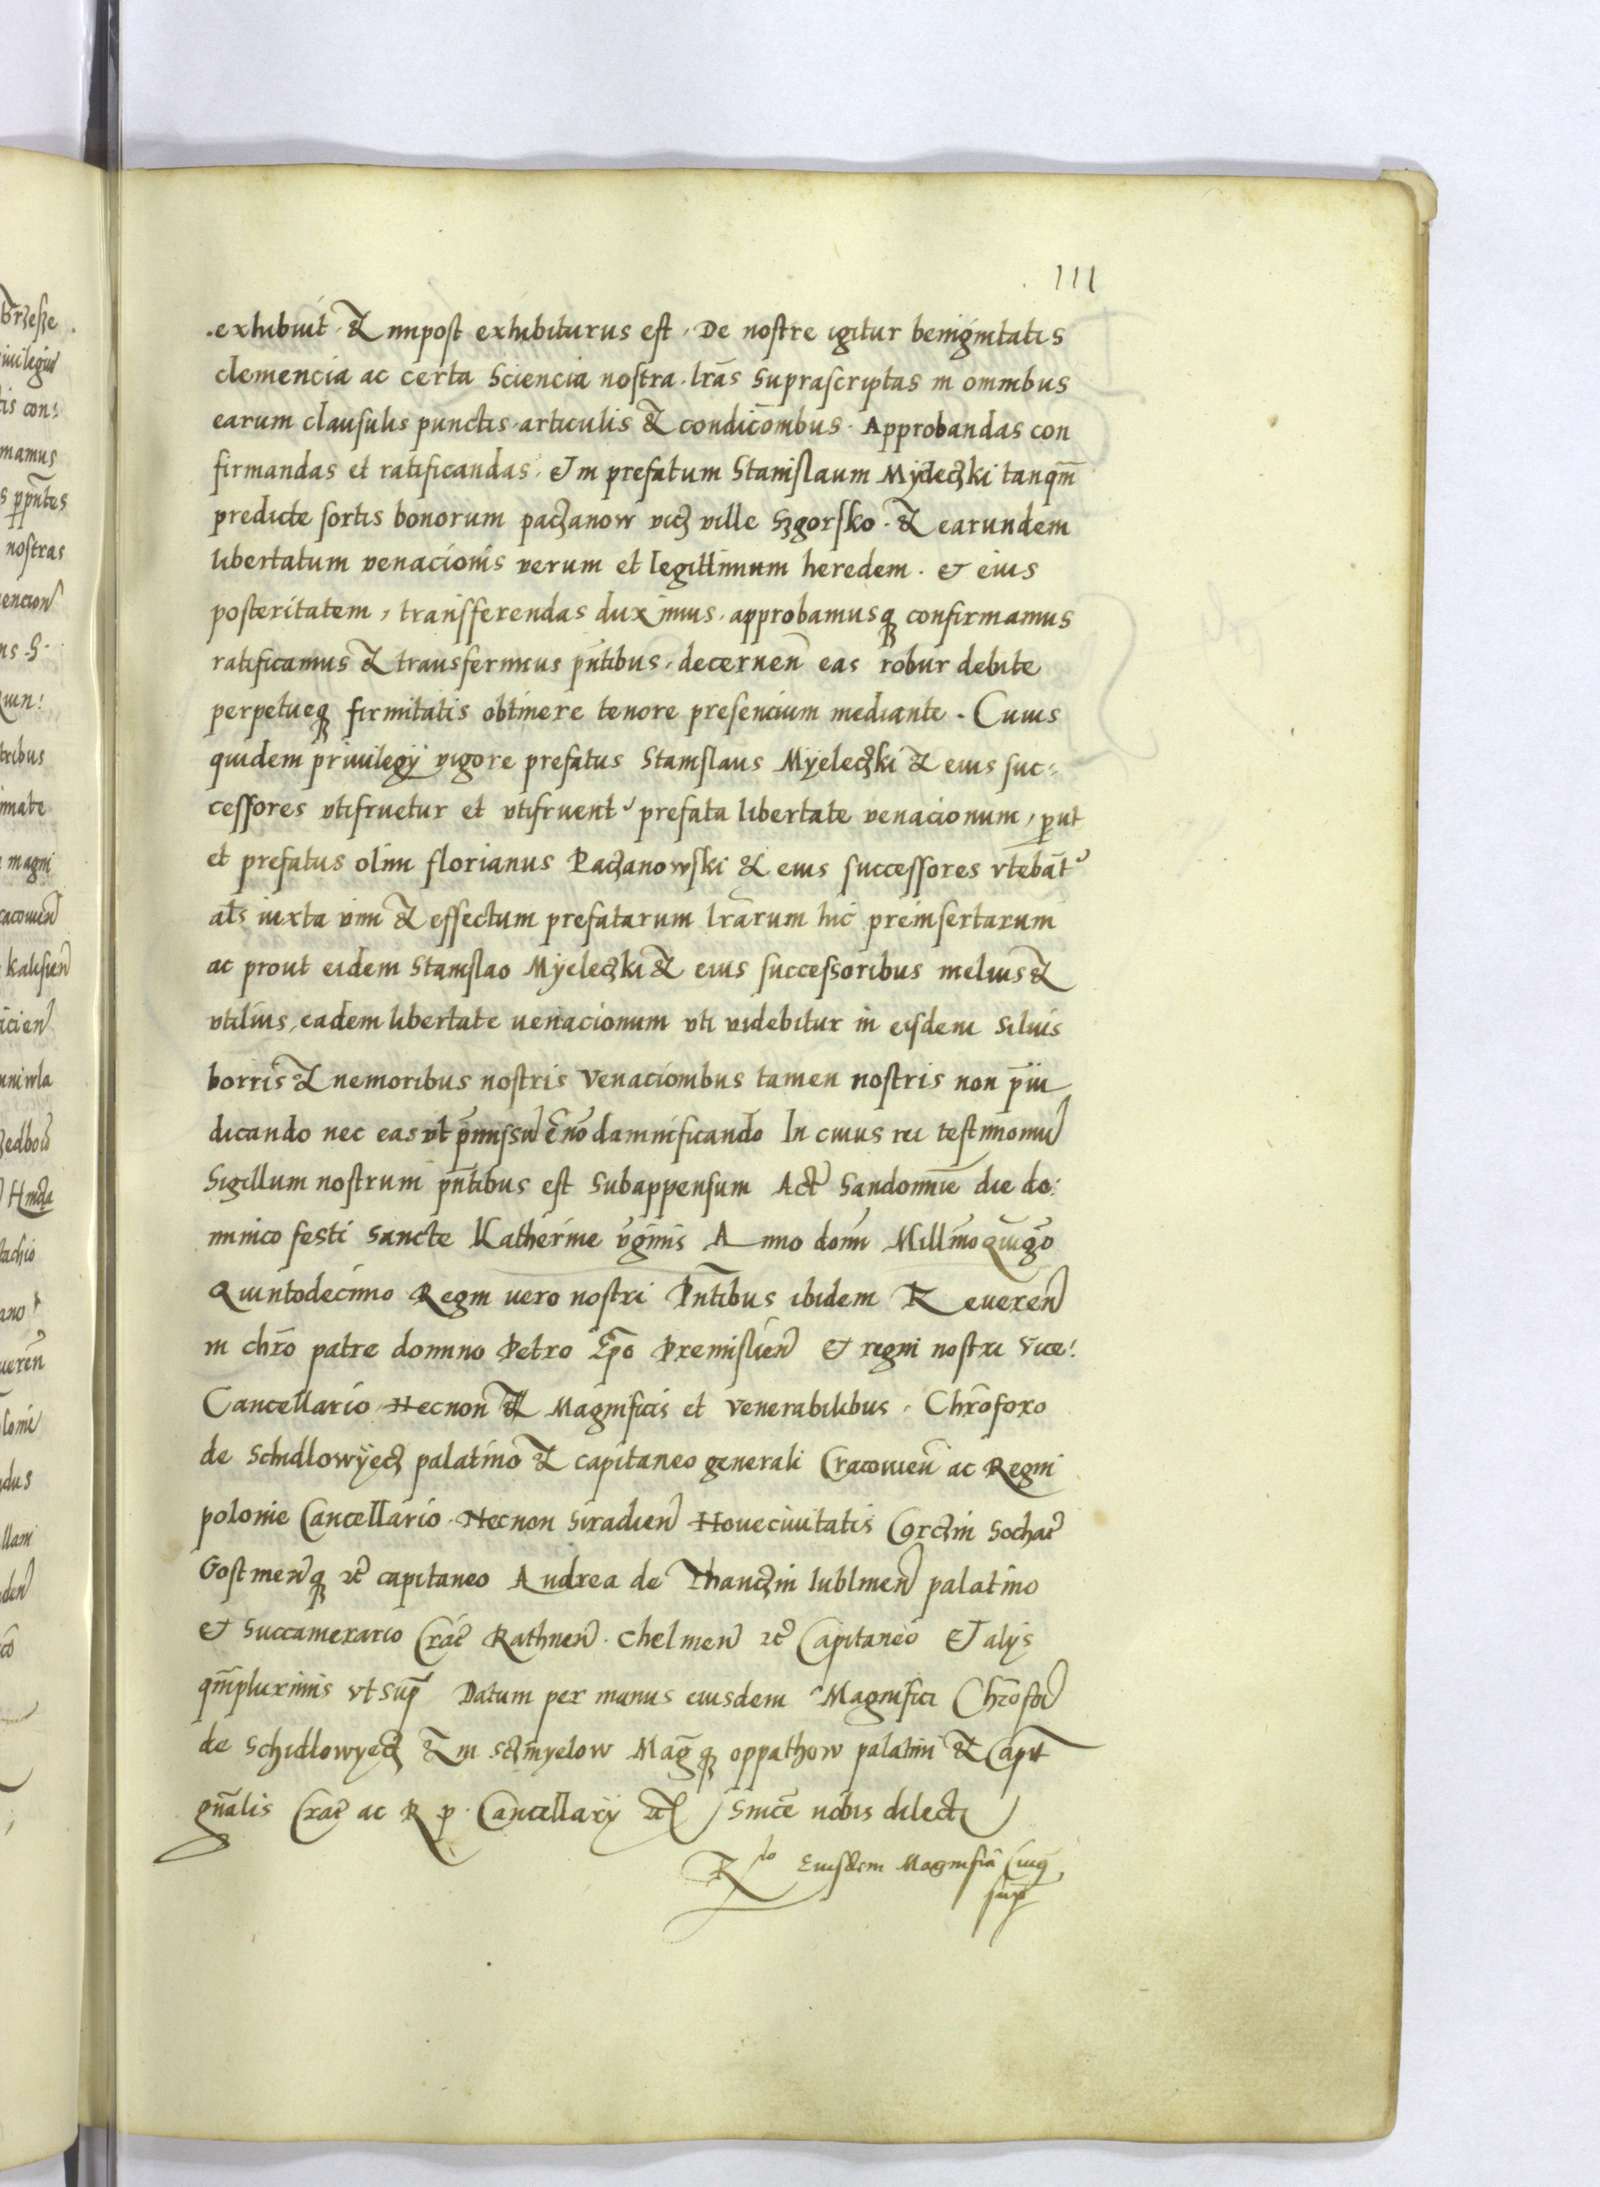 111
.exhibuit. & inpost exhibiturus est. De nostre igitur benignitatis
clemencia ac certa Sciencia nostra. lr̃as Suprascriptas in omnibus
earum clausulis punctis. articulis & condic̃onibus. Approbandas con
firmandas et ratificandas. Et in prefatum Stanislaum Myeleczki tanqm̃
predicte sortis bonorum paczanow vicz ville Szgorsko. & earundem
libertatum venacionis verum et legittimum heredem. & eius
posteritatem, transferendas duximus. approbamusq confirmamus
ratificamus & transferimus pñtibus. decernen̄ eas robur debite
perpetueq firmitatis obtinere tenore presencium mediante. Cuius
quidem priuilegÿ vigore prefatus Stanislaus Myeleczki & eius suc-
cessores vtifruetur et vtifruent' prefata libertate venacionum, p̱ut
et prefatus olim florianus Paczanowski & eius successores vtebāt'
al̄s iuxta vim & effectum prefatarum lr̃arum hic preinsertarum
ac prout eidem Stanislao Myeleczki & eius successoribus melius &
vtilius, eadem libertate venacionum vti videbitur in eisdem siluis
borris & nemoribus nostris Venacionibus tamen nostris non p̄iu
dicando nec eas vt p̄missū ē no damnificando In cuius rei testimoniū
Sigillum nostrum pñtibus est Subappensum Act̄ Sandomie die do:
minico festi Sancte Katherine v̄ginis Anno domi Millmo quīgo
Quintodecimo Regni uero nostri Pñtibus ibidem Reueren̄
in chr̄o patre domino Petro Ep̄o Premislien̄ & regni nostri Vice:
Cancellario. Necnon & Magnificis et Venerabilibus. Chr̄oforo
de Schidlowÿecz palatino & capitaneo generali Cracouien̄ ac Regni
polonie Cancellario. Necnon Siradien̄ Noueciuitatis Corczin Sochac̄
Gostinen̄q zc̄ capitaneo Andrea de Thanczin lublinen̄ palatino
& Succamerario Crac̄ Rathnen̄. Chelmen̄ zc̄ Capitaneo Et alÿs
qm̄plurimis vt sup̄ Datum per manus eiusdem Magnifici Chr̄ofori
de Schidlowyecz & in Sczmyelow Mag̃q oppathow palatini & Capit
gñalis Crac̄ ac R p. Cancellarÿ zc̄ Sincē nobis dilecti
Rlo Eiusdem Magnifici
sup̄